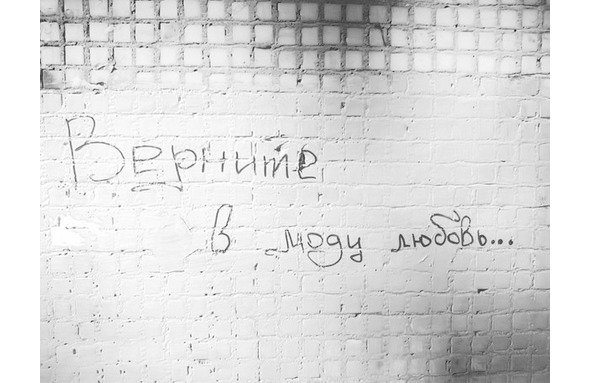 Верните
в моду любовь...